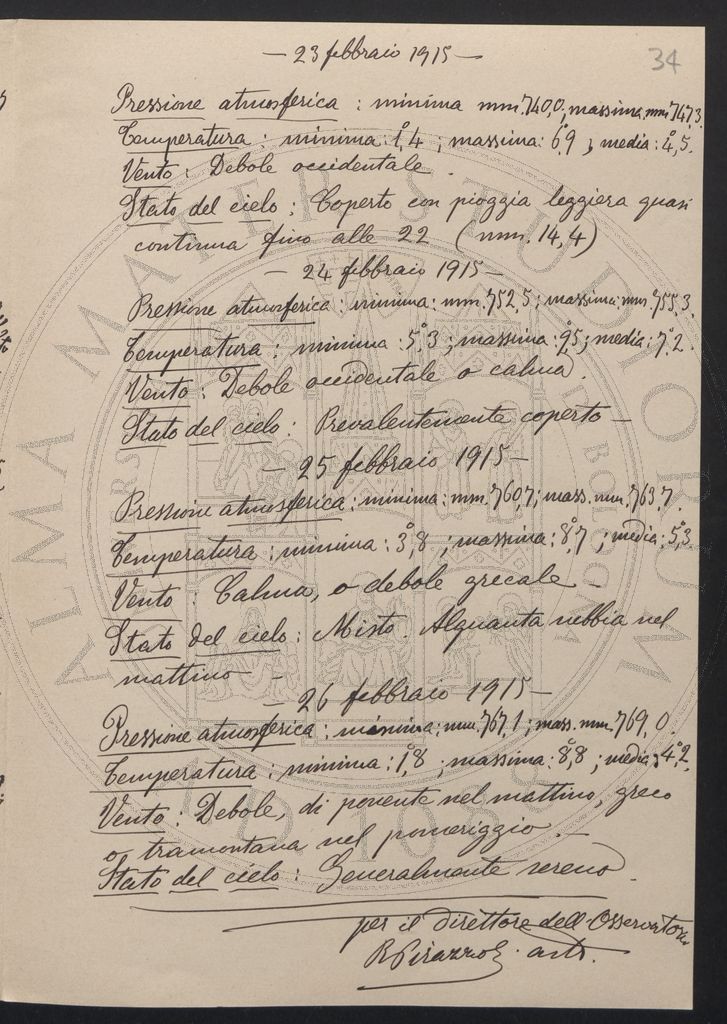 34
— 23 febbraio 1915 —
Pressione atmosferica : minima mm. 740,0; massima mm. 747,3.
Temperatura : minima : 1°,4 ; massima : 6°,9 ; media : 4°,5.
Vento : Debole occidentale.
Stato del cielo : Coperto con pioggia leggiera quasi
continua fino alle 22 (mm. 14,4)
— 24 febbraio 1915 —
Pressione atmosferica : minima : mm. 752,5 ; massima mm. 755,3.
Temperatura : minima : 5°,3 ; massima : 9°,5 ; media : 7°,2.
Vento : Debole occidentale o calma.
Stato del cielo : Prevalentemente coperto —
— 25 febbraio 1915 —
Pressione atmosferica : minima : mm. 760,7 ; mass. mm. 763,7.
Temperatura : minima : 3°,8 ; massima : 8°,7 ; media : 5°,3
Vento : Calma, o debole grecale —
Stato del cielo : Misto. Alquanta nebbia nel
mattino —
— 26 febbraio 1915 —
Pressione atmosferica : minima : mm. 767,1 ; mass. mm. 769,0.
Temperatura : minima : 1°,8 ; massima : 8°,8 ; media : 4°,2.
Vento : Debole, di ponente nel mattino, greco
o tramontana nel pomeriggio. —
Stato del cielo : Generalmente sereno.
per il direttore dell'Osservatorio
R Pirazzoli astr.
ALMA MATER STUDIORUM
A.D. 1088